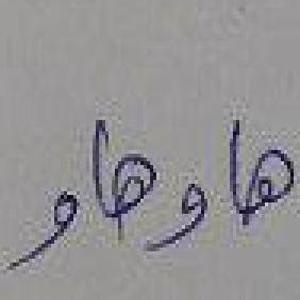 هاوهاو